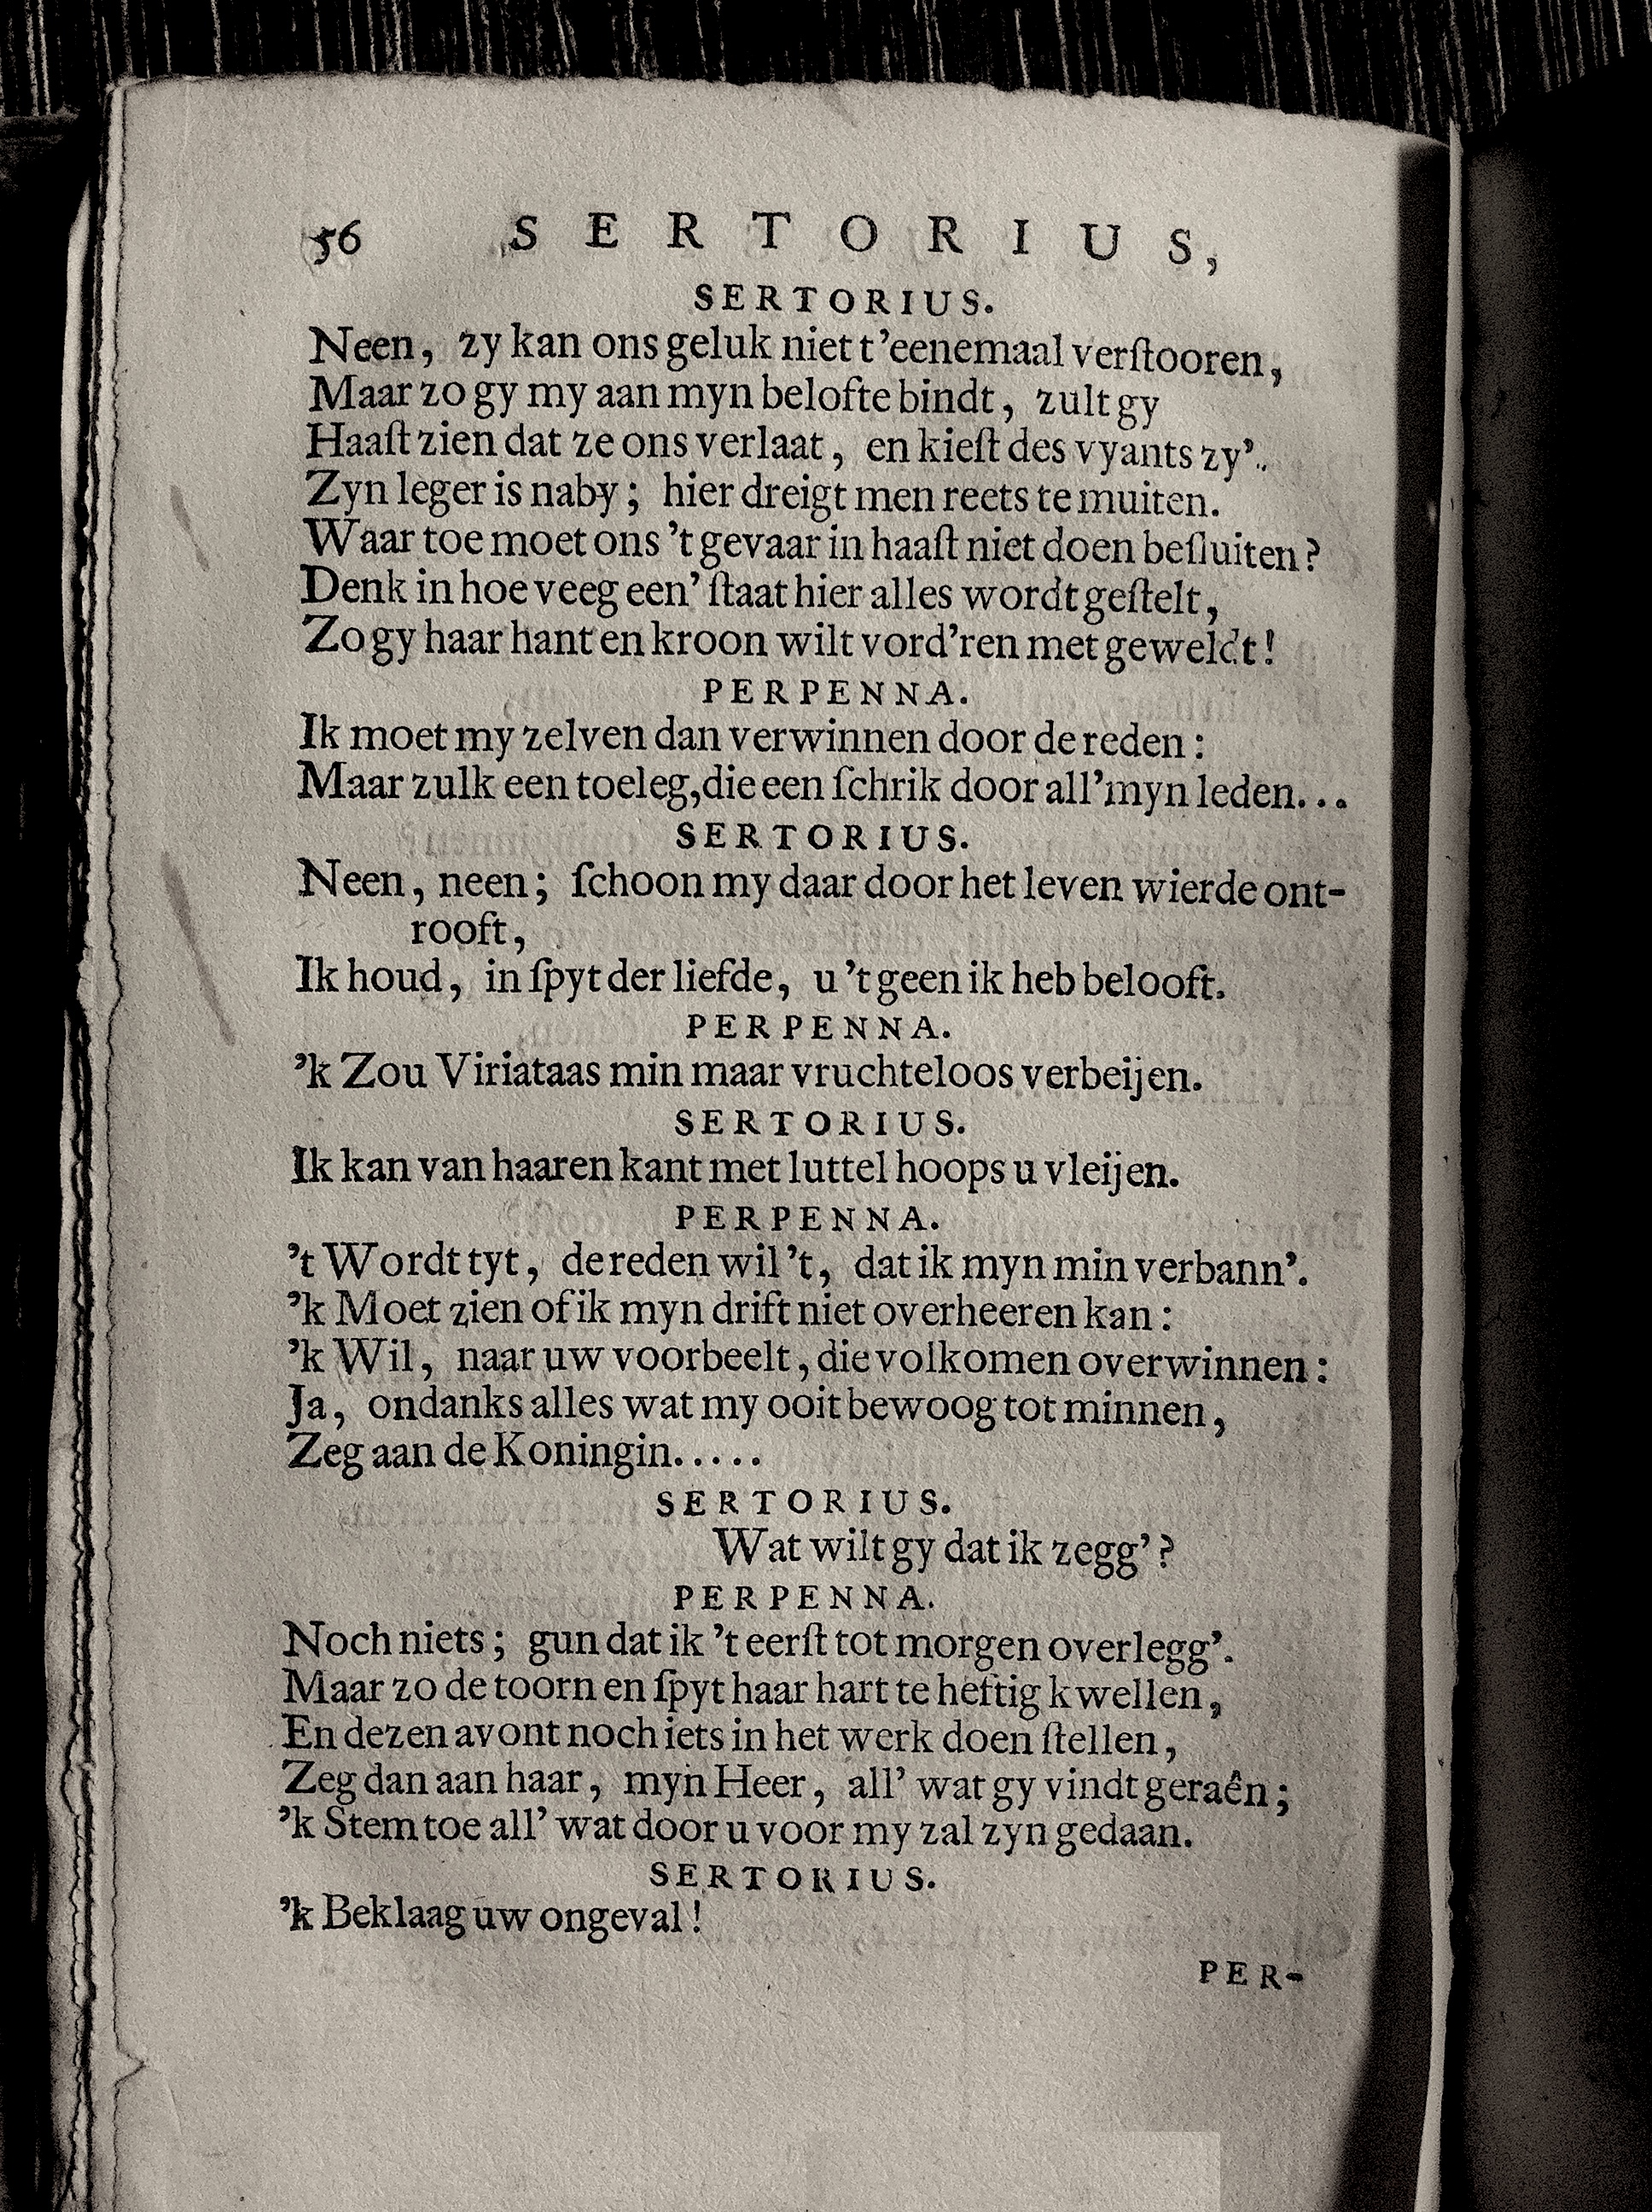 56 SERTORIUS,
SERTORIUS.
Neen, zy kan ons geluk niet t'eenemaal verſtooren,
Maar zo gy my aan myn belofte bindt, zult gy
Haaſt zien dat ze ons verlaat, en kieſt des vyants zy'.
Zyn leger is naby; hier dreigt men reets te muiten.
Waar toe moet ons 't gevaar in haaſt niet doen beſluiten?
Denk in hoe veeg een' ſtaat hier alles wordt geſtelt,
Zo gy haar hant en kroon wilt vord'ren met geweldt!
PERPENNA.
Ik moet my zelven dan verwinnen door de reden:
Maar zulk een toeleg, die een ſchrik door all' myn leden...
SERTORIUS.
Neen, neen; ſchoon my daar door het leven wierde ont-
rooft,
Ik houd, in ſpyt der liefde, u 't geen ik heb belooft.
PERPENNA.
'k Zou Viriataas min maar vruchteloos verbeijen.
SERTORIUS.
Ik kan van haaren kant met luttel hoops u vleijen.
PERPENNA.
't Wordt tyt, de reden wil 't, dat ik myn min verbann'.
'k Moet zien of ik myn drift niet overheeren kan:
'k Wil, naar uw voorbeelt, die volkomen overwinnen:
Ja, ondanks alles wat my ooit bewoog tot minnen,
Zeg aan de Koningin.....
SERTORIUS.
Wat wilt gy dat ik zegg'?
PERPENNA.
Noch niets; gun dat ik 't eerſt tot morgen overlegg'.
Maar zo de toorn en ſpyt haar hart te heftig kwellen,
En dezen avont noch iets in het werk doen ſtellen,
Zeg dan aan haar, myn Heer, all' wat gy vindt geraên;
'k Stem toe all' wat door u voor my zal zyn gedaan.
SERTORIUS.
'k Beklaag uw ongeval!
PER-